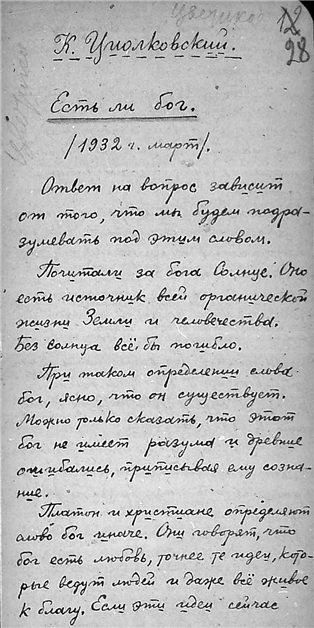 12
28
К. Циолковский.
Есть ли бог.
/1932 г. март/.
Ответ на вопрос зависит
от того, что мы будем подра-
зумевать под этим словом.
Почитали за бога Солнце. Оно
есть источник всей органической
жизни Земли и человечества.
Без солнца всё бы погибло.
При таком определении слова
бог, ясно, что он существует.
Можно только сказать, что этот
бог не имеет разума и древние
ошибались, приписывая ему созна-
ние.
Платон и христиане определяют
слово бог иначе. Они говорят, что
бог есть любовь, точнее те идеи, кото-
рые ведут людей и даже всё живое
к благу. Если эти идеи сейчас